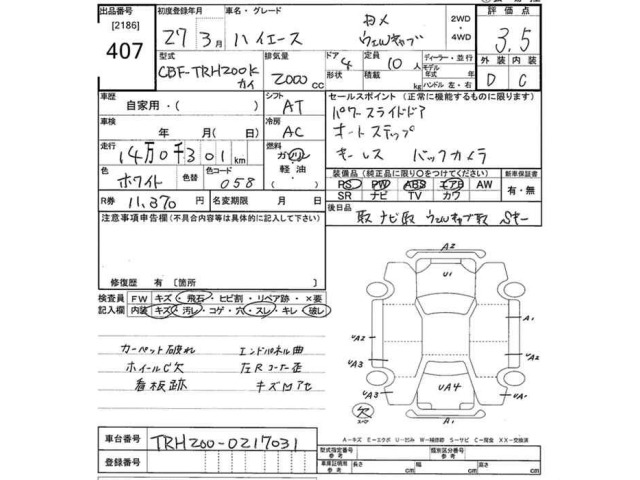 出品番号 初度登録年月 車名・グレード 評価点
[2186] 407
27年 3月 ハイエース
ウェルキャブ
2WD・4WD
3.5
外装 内装
D C
型式 排気量 ドア 定員 ディーラー・並行
CBF-TRH200K カイ 2000CC 4 10人
形状 積載 kg
モデル年式 年式
ハンドル 左・右
車歴 シフト セールスポイント(正常に機能するものに限ります)
自家用・( ) AT
パワースライドドア
車検 冷房
年 月( 日) AC
オートステップ
走行 燃料
14万0千301km ガソリン 軽油・
キーレス バックカメラ
色 色替 色コード
ホワイト 058
装備品(純正品に限り○をつけてください) 新車保証書
PS PW ABS エアB AW
SR ナビ TV カワ
有・無
R券 11,370円 名変期限 月 日
後日品
取 ナビ取 ウェルキャブ取 Sキー
注意事項申告欄(不具合内容等は具体的に記入して下さい)
修復歴 有[箇所 ]
検査員記入欄
FW キズ・飛石・ヒビ割・リペア跡・×要
内装 キズ・汚レ・コゲ・穴・スレ・キレ・破レ
カーペット破れ エンドパネル曲
ホイールC欠 左Rコーナー歪
看板跡 キズMアセ
A2
U1
A1
UA2 A2
UA3 UA3
UA4
欠
A1
A-キズ E-エクボ U-凹み W-補修跡 S-サビ C-腐食 XX-交換済
車台番号 TRH200-0217031
登録番号
型式指定番号 類別区分番号
車庫証明用参考 長さ cm 幅 cm 高さ cm